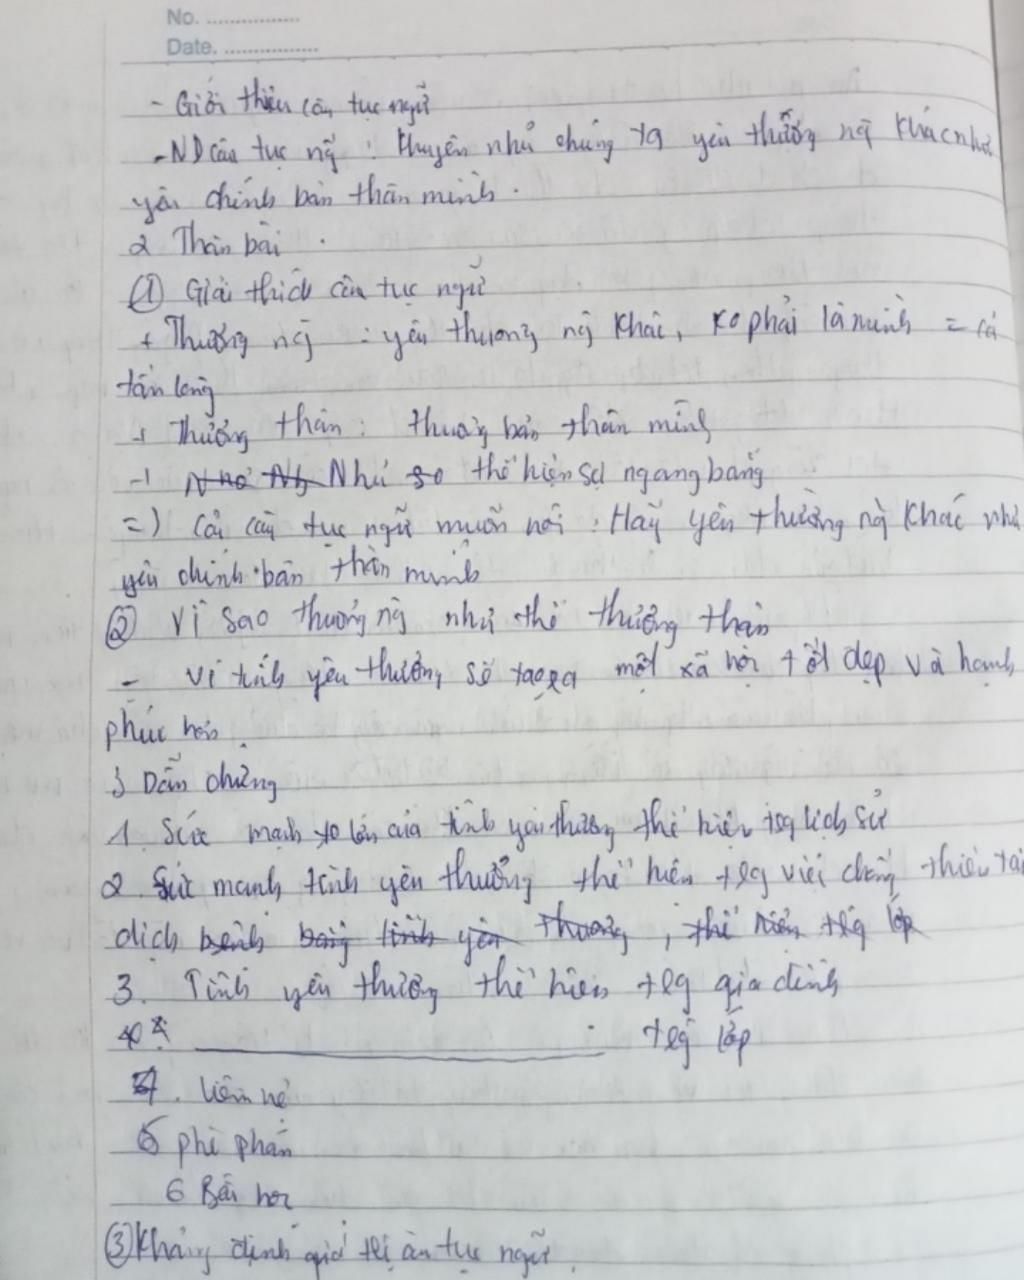 No. ................
Date. ................
- Giới thiệu câu tục ngữ
- ND câu tục ng~ : Khuyên nhủ chúng ta yêu thương ng` khác như
yêu chính bản thân mình .
2 Thân bài .
① Giải thích câu tục ngữ
+ Thương ng` : yêu thương ng` khác, ko phải là mình = cả
tấm lòng
+ Thương thân : thương bản thân mình
-) Như so thể hiện sự ngang bằng
=) Cả câu tục ngữ muốn nói : Hãy yêu thương ng` khác như
yêu chính bản thân mình
② Vì sao thương ng` như thể thương thân
- Vì tình yêu thương sẽ tạo ra một xã hội tốt đẹp và hạnh
phúc hơn .
3 Dẫn chứng
1. Sức mạnh to lớn của tình yêu thương thể hiện trg lịch sử
2. Sức mạnh tình yêu thương thể hiện trg việc chống thiên tai
dịch bệnh bằng tình yêu thương, thể hiện trg lớp
3. Tình yêu thương thể hiện trg gia đình
4 trg lớp
4. Liên hệ
5 phê phán
6 Bài học
③ Khẳng định giá trị câu tục ngữ .